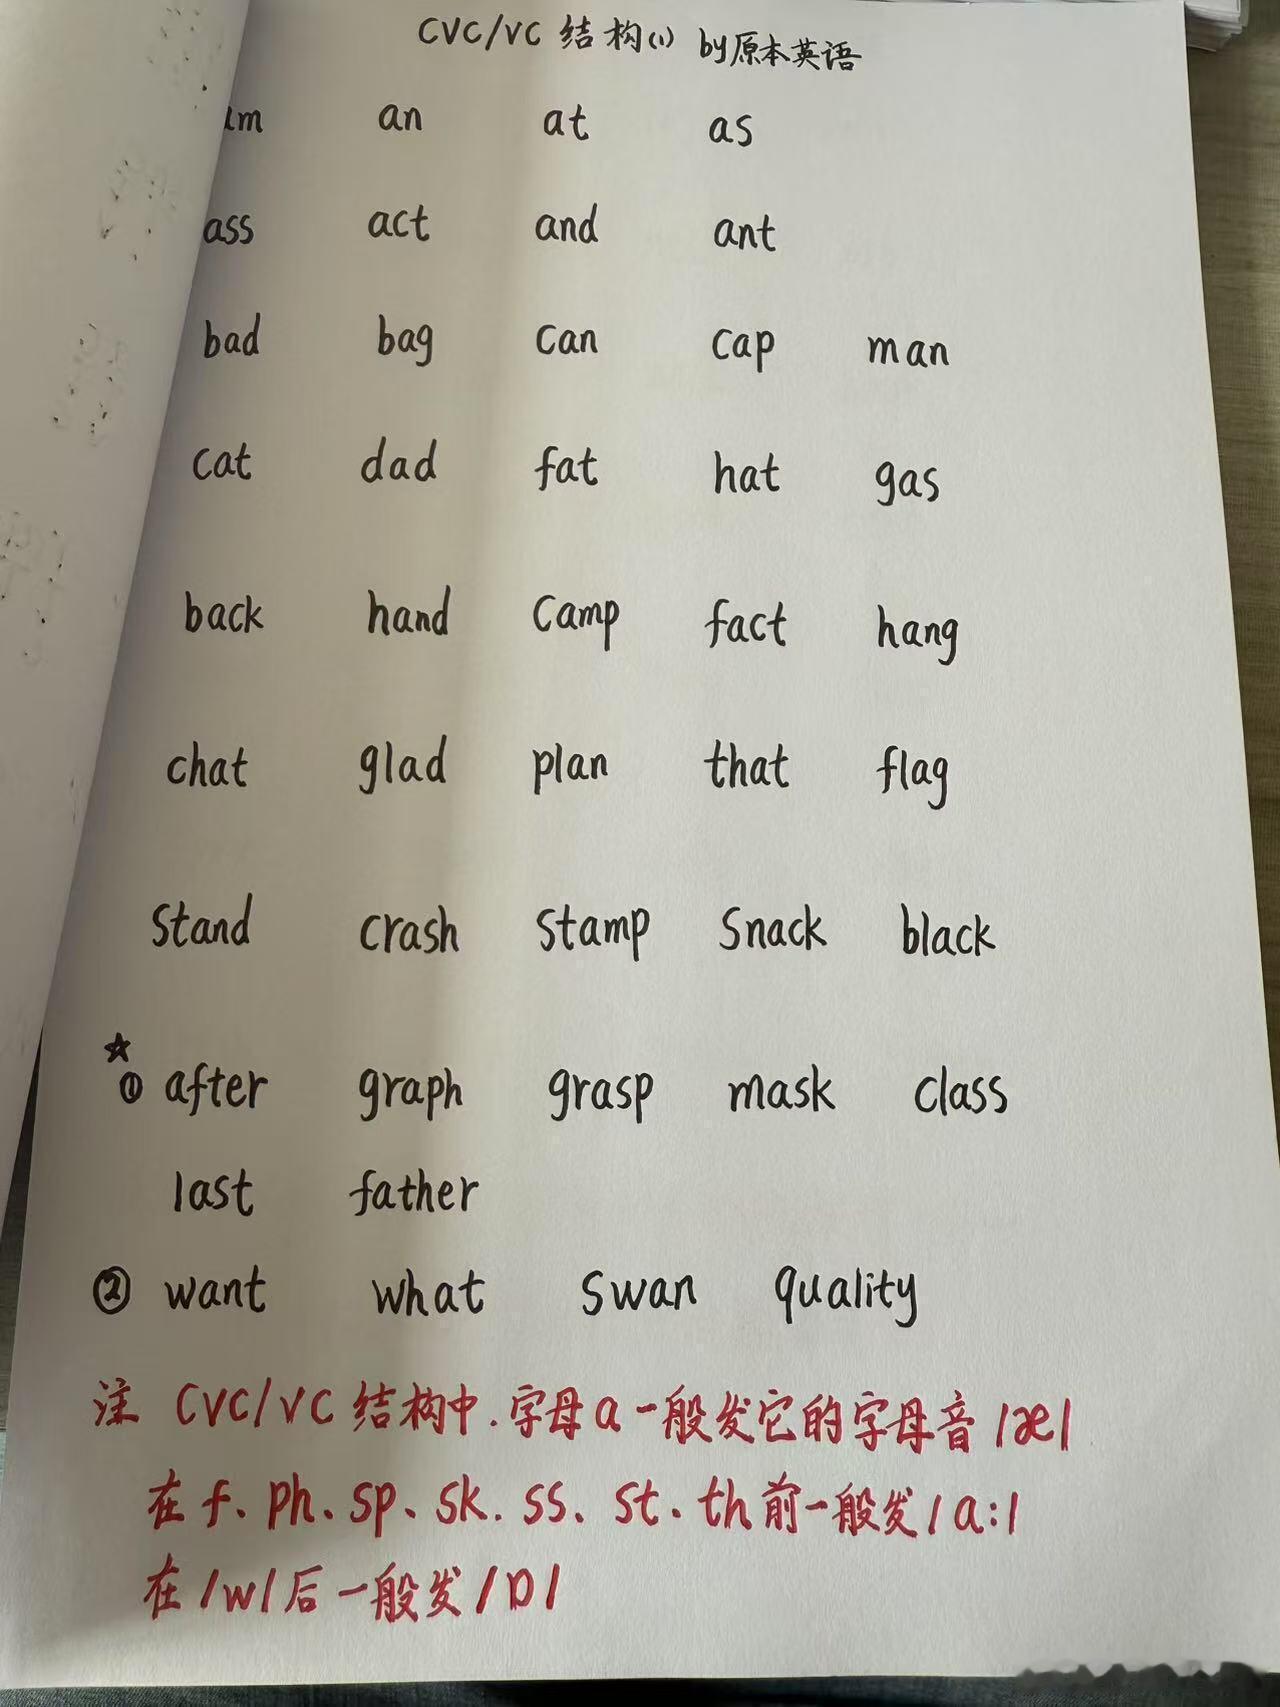 CVC/VC 结构(1) by原本英语
an at as
ass act and ant
bad bag can cap man
cat dad fat hat gas
back hand camp fact hang
chat glad plan that flag
stand crash stamp snack black
☆
① after graph grasp mask class
last father
② want what swan quality
注 CVC/VC 结构中.字母a一般发它的字母音/æ/
在 f、ph、sp、sk. ss、st、th前一般发/a:/
在/w/后一般发/ɒ/